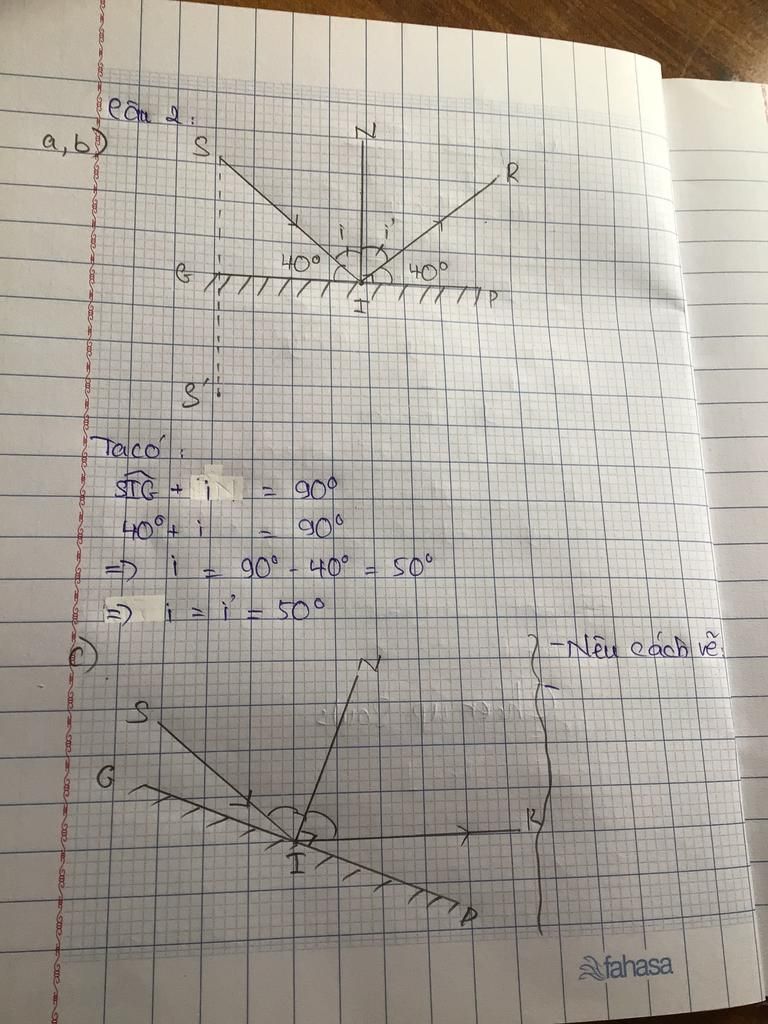 Câu 2:
a, b)
S
N
R
i
i'
40°
40°
G
I
P
S'
Ta có:
SIG + i = 90°
40° + i = 90°
=> i = 90° - 40° = 50°
=> i = i' = 50°
c)
- Nêu cách vẽ
-
N
S
G
R
I
P
fahasa